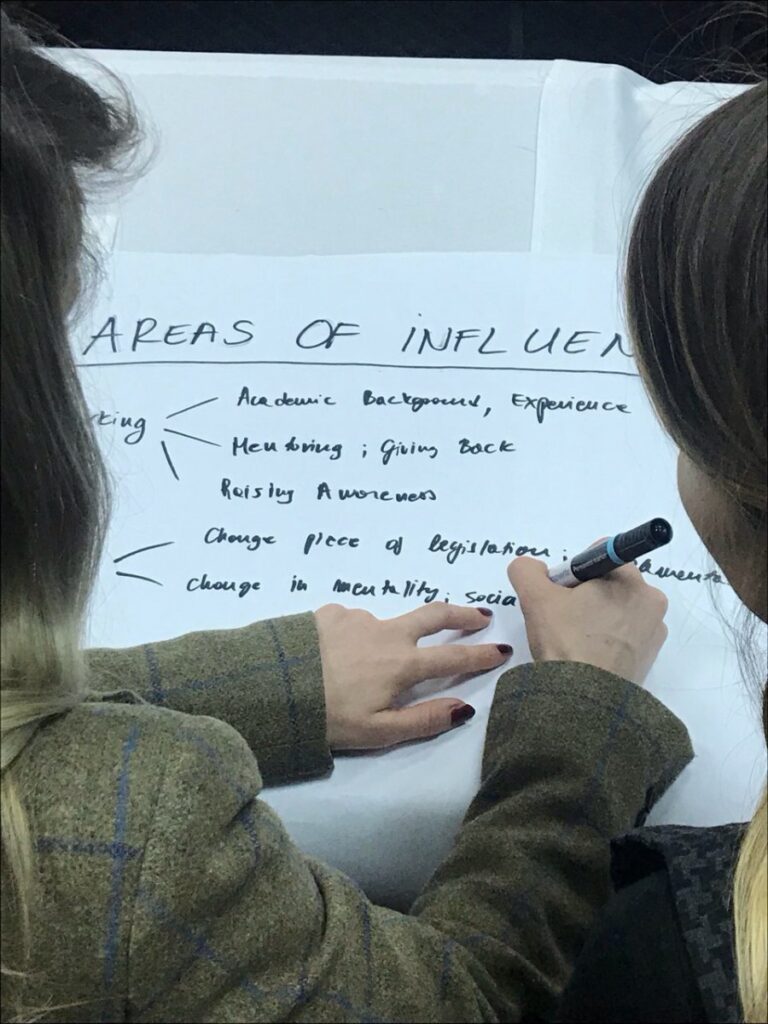 AREAS OF INFLUEN
king Academic Background, Experience
Mentoring ; Giving Back
Raising Awareness
Change piece of legislation ;
change in mentality ; socia